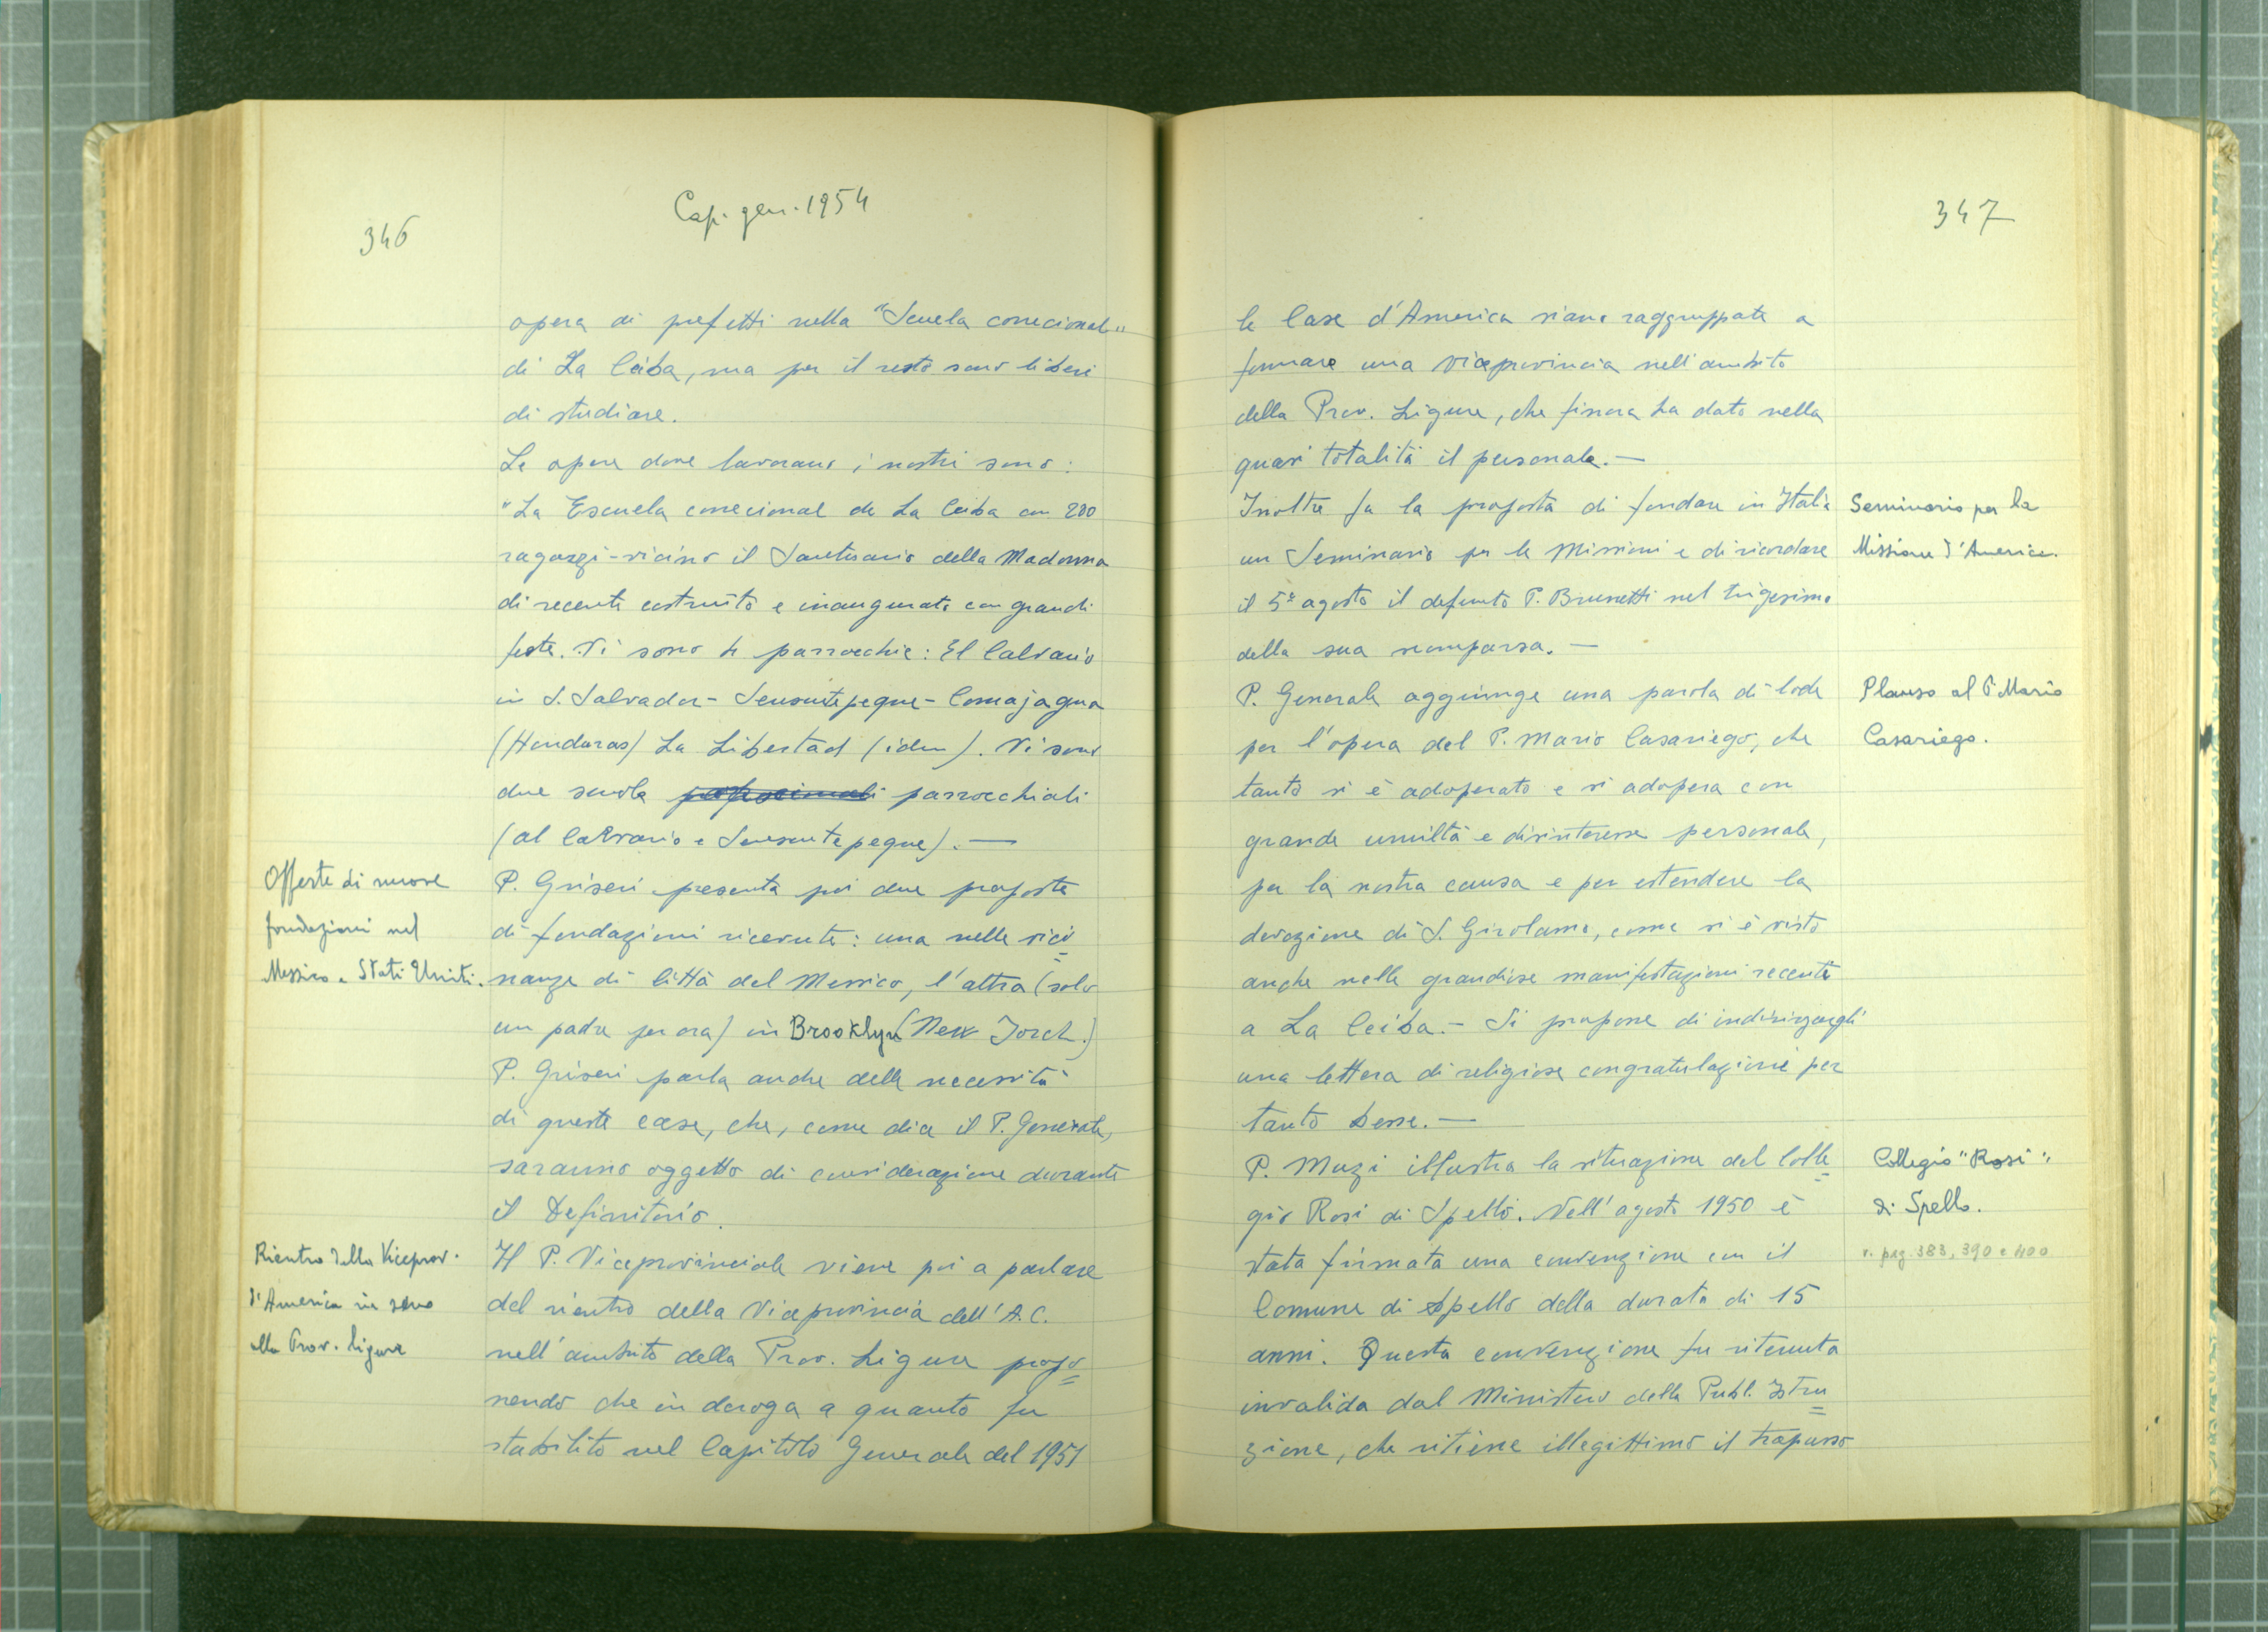 346
Cap. gen. 1954
opera di prefetti nella "Scuela correcional"
di La Ceiba, ma per il resto sono liberi
di studiare.
Le opere dove lavorano i nostri sono:
"La Escuela correcional de La Ceiba con 200
ragazzi - vicino il Santuario della Madonna
di recente costruito e inaugurato con grandi
feste. Vi sono 4 parrocchie: El Calvario
in S. Salvador - Sensuntepeque - Comajagua
(Honduras) La Libertad (idem). Vi sono
due scuole professionali parrocchiali
(al Calvario e Sensuntepeque). —
Offerte di nuove
fondazioni nel
Messico e Stati Uniti.
P. Griseri presenta poi due proposte
di fondazioni ricevute: una nelle vici=
nanze di Città del Messico, l'altra (solo
un padre per ora) in Brooklyn (New Jorch.)
P. Griseri parla anche della necessità
di queste case, che, come dice il P. Generale,
saranno oggetto di considerazione durante
il Definitorio.
Rientro della Viceprov.
d'America in seno
alla Prov. ligure
Il P. Viceprovinciale viene poi a parlare
del rientro della Viceprovincia dell'A.C.
nell'ambito della Prov. Ligure propo=
nendo che in deroga a quanto fu
stabilito nel Capitolo Generale del 1951
347
le Case d'America siano raggruppate a
formare una viceprovincia nell'ambito
della Prov. Ligure, che finora ha dato nella
quasi totalità il personale. —
Inoltre fa la proposta di fondare in Italia
un Seminario per le Missioni e di ricordare
il 5 agosto il defunto P. Brunetti nel trigesimo
della sua scomparsa. —
Seminario per la
Missione d'America.
P. Generale aggiunge una parola di lode
per l'opera del P. Mario Casariego, che
tanto si è adoperato e si adopera con
grande umiltà e disinteresse personale,
per la nostra causa e per estendere la
devozione di S. Girolamo, come si è visto
anche nelle grandiose manifestazioni recenti
a La Ceiba. - Si propone di indirizzargli
una lettera di religiose congratulazioni per
tanto bene. —
Plauso al P. Mario
Casariego.
P. Muzi illustra la situazione del Colle=
gio Rosi di Spello. Nell'agosto 1950 è
stata firmata una convenzione con il
Comune di Spello della durata di 15
anni. Questa convenzione fu ritenuta
invalida dal Ministero della Pubbl. Istru=
zione, che ritiene illegittimo il trapasso
Collegio "Rosi"
di Spello.
v. pag. 383, 390 e 400